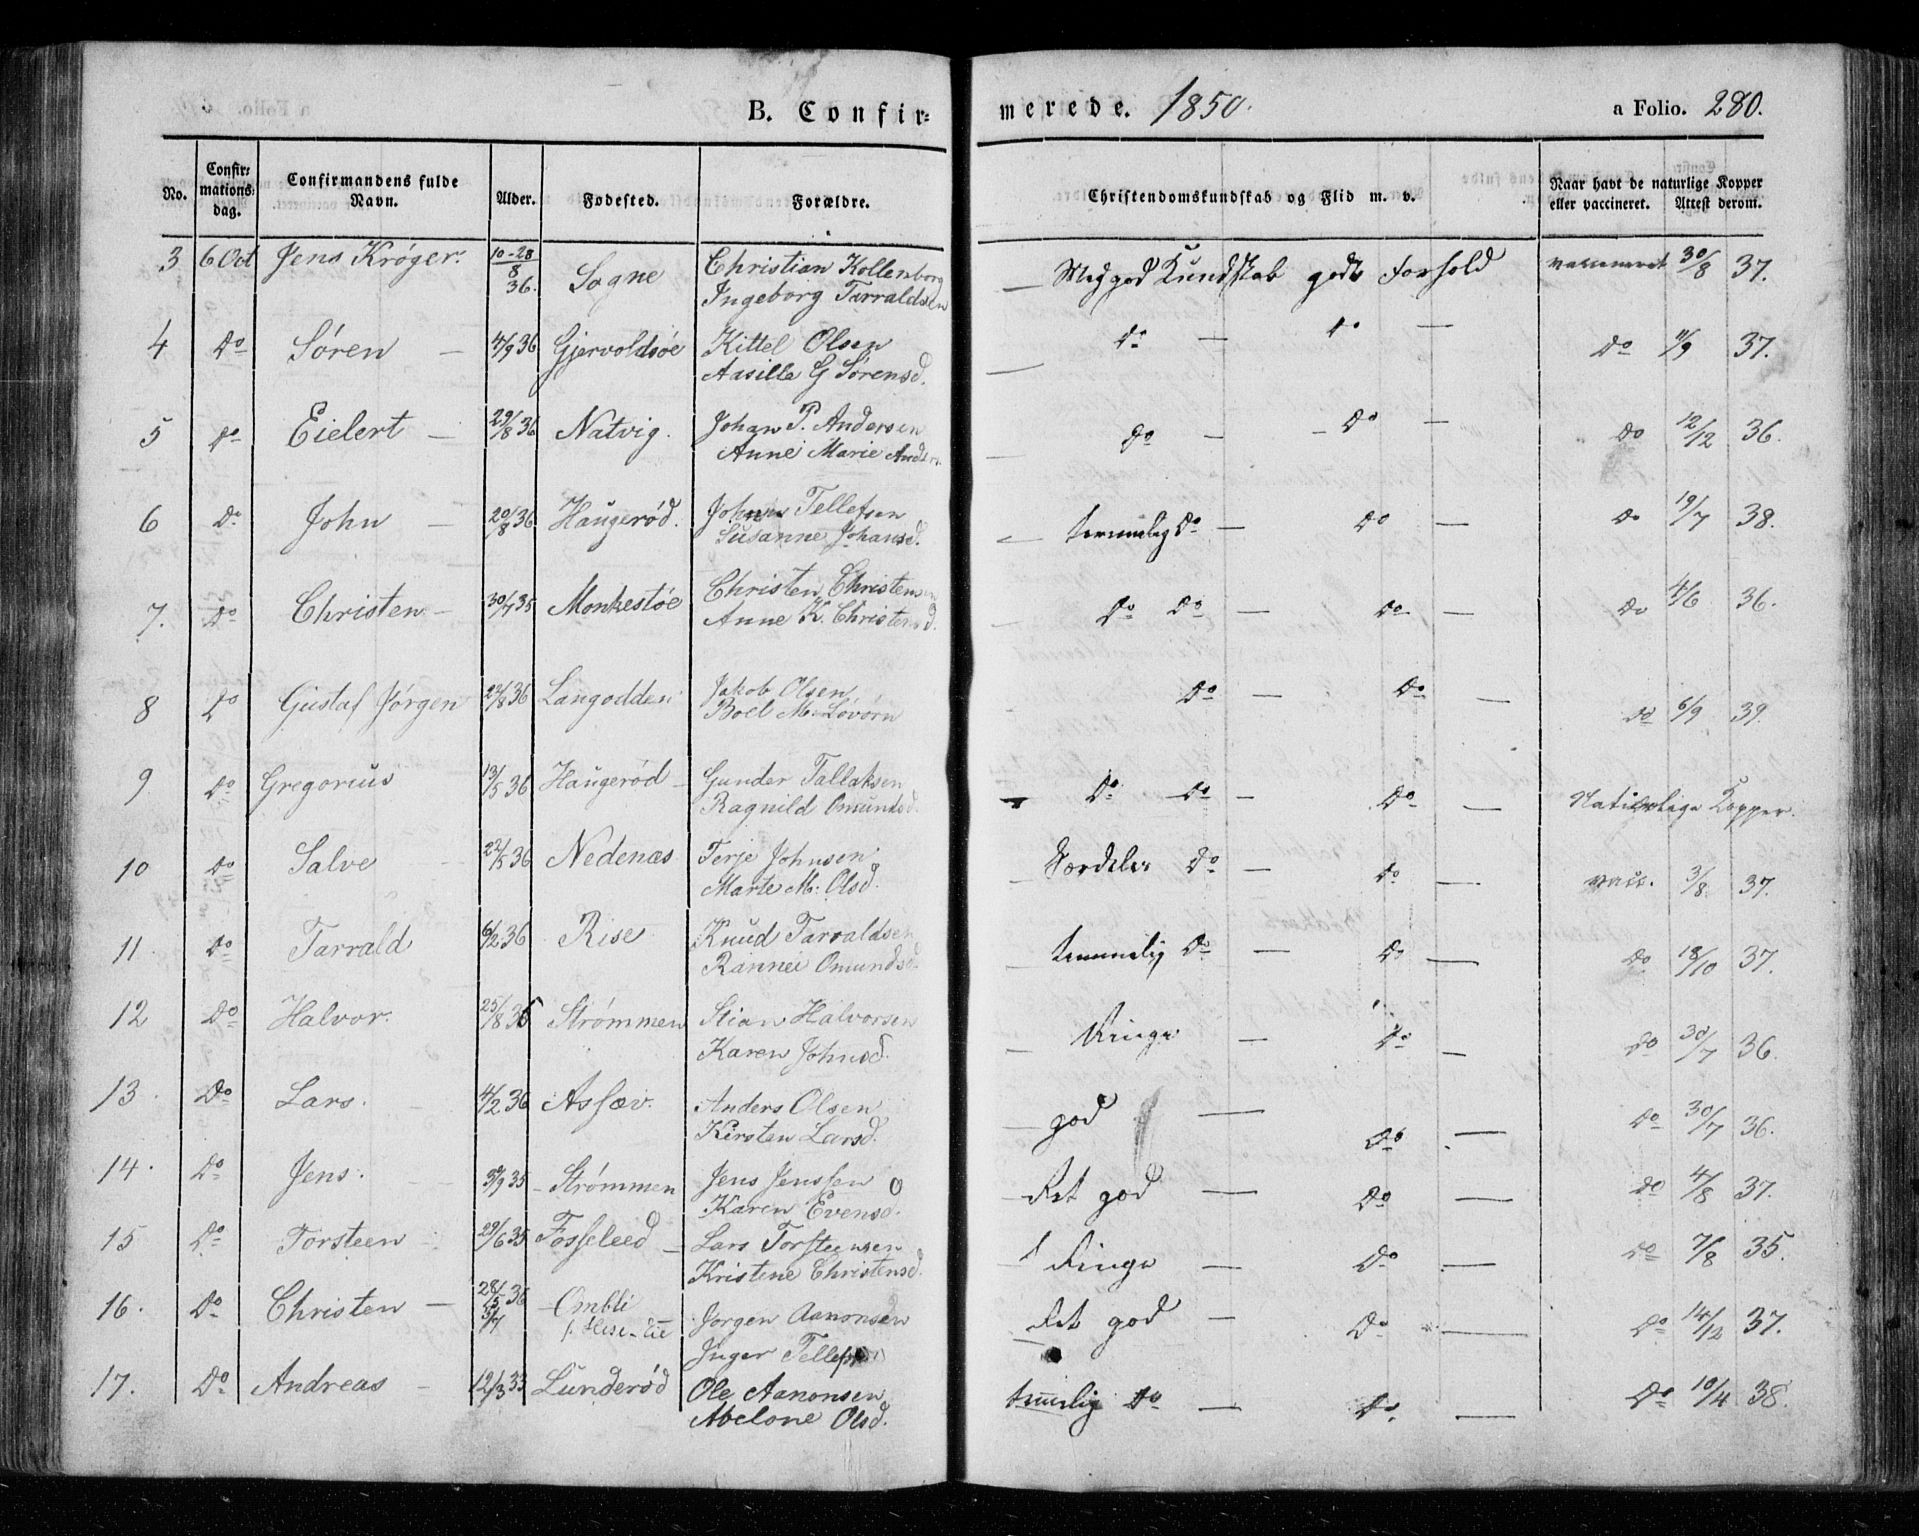 B. Confir- merede. 1850. a Folio. 280.
No. Confir-mations-dag. Confirmandens fulde Navn. Alder. Fødested. Forældre. Christendomskundskab og Flid m. v. Naar havt de naturlige Kopper eller vaccineret. Attest derom.
3 6 Oct Jens Krøger. 10-28/8 36. Sogne Christian Kollenborg — Med god Kundskab godt Forhold vaccineret 30/8 37.
Ingeborg Tarraldsen
4 Do Søren — 4/9 36 Gjervoldsøe Kittel Olsen — do — do — Do 11/9 37.
Aasille G Sørensd.
5 Do Eielert — 29/8 36 Natvig. Johan P. Andersen do — — Do — Do 12/12 36.
Anne Marie Anders
6 Do John — 20/8 36 Haugerød. Johan Tellefsen — temmelig Do — Do — Do 19/7 38.
Susanne Johansd.
7. Do Christen — 30/7 35 Monkestøe Christen Christensen — Do Do — Do — Do 4/6 36.
Anne K. Christensd.
8 Do Gustaf Jørgen 22/8 36 Langodden Jakob Olsen Do — Do — Do 6/9 39.
Boel M. Løvorn
9 Do Gregorius 13/5 36 Haugerød — Gunder Tallaksen — Do Do — Do — Naturlige Kopper.
Ragnild Omundsd.
10 Do Salve 22/5 36 Nedenæs Terje Johnsen — Særdeles Do — Do — vacc. 3/8 37.
Marte M: Olsd.
11. Do Tarrald 6/2 36 Rise Knud Tarraldsen — temmelig Do — Do — Do 18/10 37.
Rannei Omundsd
12 Do Halvor. 25/8 36 Strømmen Stian Halvorsen — Ringe — Do — Do 30/7 36.
Karen Johnsd.
13. Do Lars. 4/2 36 Assæv. Anders Olsen — god — Do — Do 30/7 36.
Kirsten Larsd.
14. Do Jens. 3/9 35 — Strømmen Jens Jenssen — Ret god — Do — Do 4/8 37.
Karen Evensd.
15 Do Torsteen 29/6 35 Fosseleed — Lars Torsteensen Ringe — Do — Do 7/8 35.
Kristene Christensd.
16. Do Christen — 28/5 36 — Ombli Jorgen Aanonsen — Ret god — Do — Do 14/12 37.
3/7 Inger Tellefs
17. Do Andreas — 12/3 33 Lunderød Ole Aanonsen temmelig Do — Do — Do 10/4 38.
Abelone Olsd.